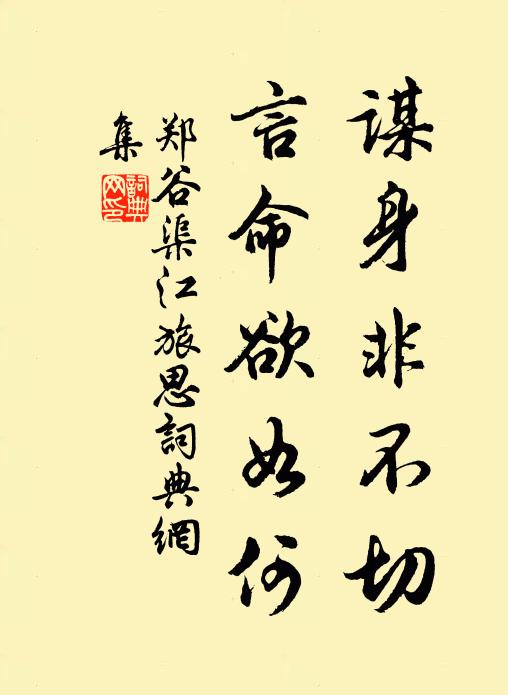 谋身非不切
言命欲如何
郑谷渠江旅思詞典網
集
詞典
网印